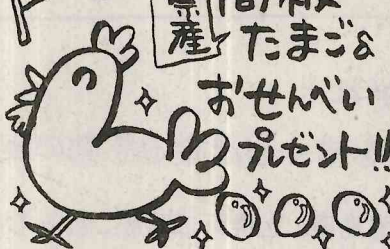 県産
たまご&
おせんべい
プレゼント!!